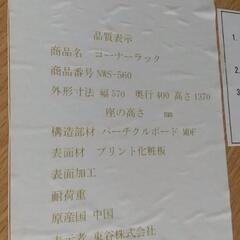 品質表示
商品名 コーナーラック
商品番号 NWS-560
外形寸法 幅570 奥行400 高さ1370
座の高さ mm
構造部材 パーチクルボード MDF
表面材 プリント化粧板
表面加工
耐荷重
原産国 中国
表示者 東谷株式会社
1.
2